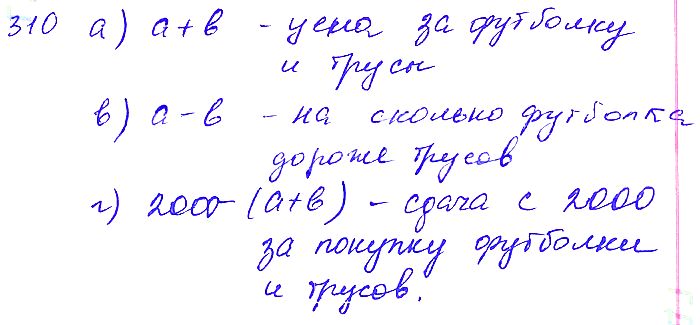 310 а) а+в - цена за футболку
и трусы
в) а-в - на сколько футболка
дороже трусов
г) 2000-(а+в) - сдача с 2000
за покупку футболки
и трусов.